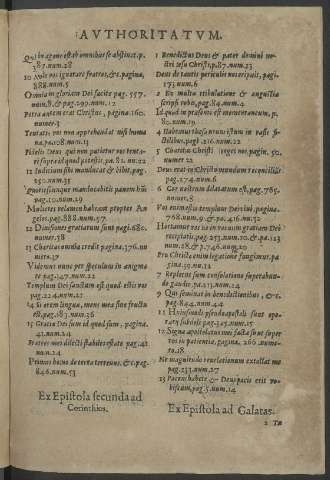 AVTHORITATVM.
Qui in agone est ab omnibus se abstinet.p.
387.num.28
10 Nolo vos ignorare fratres, &c. pagina,
888.num.5
Omnia in gloriam Dei facite pag. 557.
num.8.& pag.290.num.12
Petra autem erat Christus, pagina, 160.
numer.3
Tentatio vos non apprehendat nisi huma
na.pa.108.num.13
Fidelis Deus qui non patietur vos tenta-
ri supra id quod potestis. pa.82. nu.22
11 Iudicium sibi manducat & bibit, pag.
250.num.35
pag.10.num.29
Mulieres velamen habeant propter An
gelos.pag.888.num.57.
12 Diuisiones gratiarum sunt pag.680.
numer.58
13 Charitas omnia credit pagina, 376.nu
mero.37
Videmus nunc per speculum in ænigma
te pag.347.num.22
Templum Dei sanctum est quod estis vos
pag.224.num.27
14 Si orem lingua, mens mea sine fructu
est.pag.183.num.36
15 Gratia Dei sum id quod sum, pagina,
41.num.24
Fratres mei dilecti stabiles estote pag.41
num.24
Primus homo de terra terrenus, & c.pag.
846.num.53
Ex Epistola secunda ad
Corinthios.
1 Benedictus Deus & pater domini no-
stri Iesu Christi, p.87.num.23
Deus de tantis periculis nos eripuit, pagi-
173.num.6
2 Ex multa tribulatione & angustia
scripsi vobis, pag.84.num.4
Id quod in præsenti est momentaneum, p.
80.num.29
4 Habemus thesaurum istum in vasis fi-
ctilibus, pag.216.num.22
5 Charitas Christi vrget nos, pagin, 50.
numer.22
Deus erat in Christo mundum reconcilias
pag.174.num.6
6 Cor nostrum dilatatum est, pag.765.
numer.8
Vos estis templum Dei viui, pagina.
768.num.9.& pa.416.nu.32
Hortamur vos ne in vacuum gratiam Dei
recipiatis, pag.253.num.10.& pa.123
num.58.& p.746.num.20
Pro Christo enim legatione fungimur, pa
gina.39.nu.13
7 Repletus sum consolatione superabun-
do gaudio pag.213.num.24
9 Qui seminat in benedictionibus, & c.
pag.844.num.44
11 Eiusmodi pseudoapostoli sunt ope-
rarij subdoli pag.345.num.15
12 Signa apostolatus mei facta sunt super
vos in patientia, pagina, 266 .nume-
ro.18.
Ne magnitudo reuelationum extollat me
pag.233.num.27
13 Pacem habete & Deus pacis erit vo-
biscum, pag.5.num.14
Ex Epistola ad Galatas.